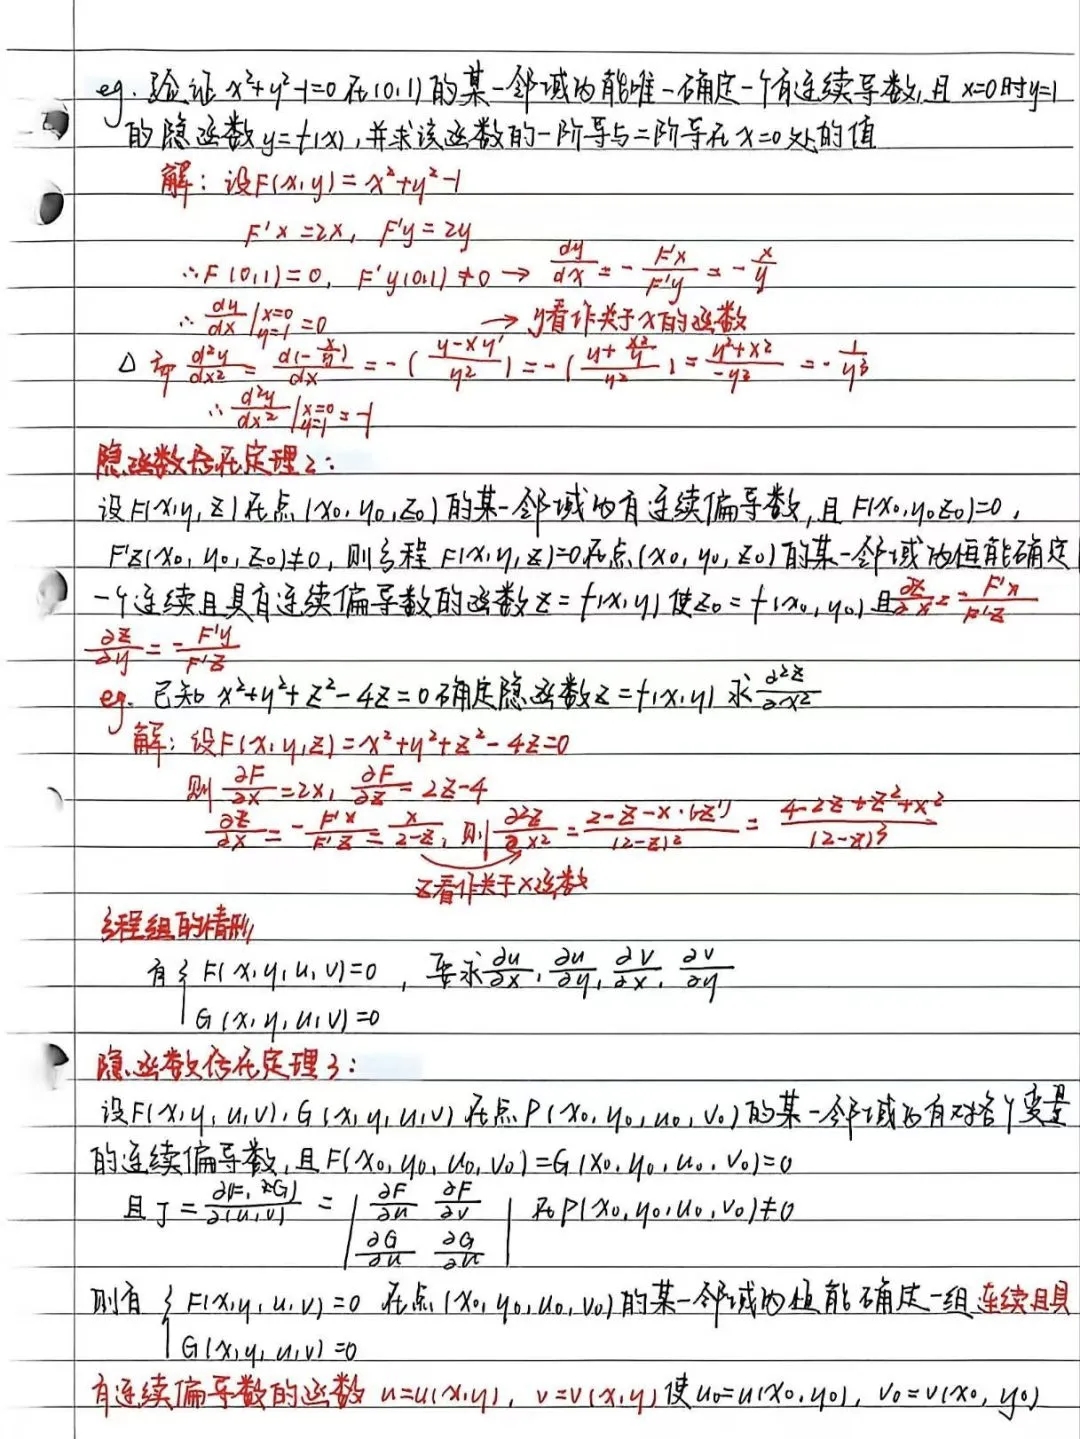 eg. 验证 x²+y²-1=0 在(0,1)的某一邻域内能唯一确定一个有连续导数,且 x=0时y=1
的隐函数 y=f(x),并求该函数的一阶导与二阶导在 x=0处的值
解: 设F(x,y)=x²+y²-1
F'x=2x, F'y=2y
∴F(0,1)=0, F'y(0,1)≠0 → dy/dx = - F'x/F'y = - x/y
∴ dy/dx |x=0 y=1 =0 → y看作关于x的函数
△ 而 d²y/dx² = d(-x/y)/dx = -( y-xy'/y² ) = -( y+x²/y / y² ) = y²+x²/-y³ = - 1/y³
∴ d²y/dx² |x=0 y=1 = -1
隐函数存在定理2:
设F(x,y,z)在点(x₀,y₀,z₀)的某一邻域内有连续偏导数,且F(x₀,y₀z₀)=0,
F'z(x₀,y₀,z₀)≠0, 则方程 F(x,y,z)=0在点(x₀,y₀,z₀)的某一邻域内恒能确定
一个连续且具有连续偏导数的函数z=f(x,y)使z₀=f(x₀,y₀)且 ∂z/∂x = - F'x/F'z
∂z/∂y = - F'y/F'z
eg. 已知 x²+y²+z²-4z=0确定隐函数z=f(x,y) 求 ∂²z/∂x²
解: 设F(x,y,z)=x²+y²+z²-4z=0
则 ∂F/∂x=2x, ∂F/∂z=2z-4
∂z/∂x = - F'x/F'z = x/2-z, 则 ∂²z/∂x² = 2-z-x·(-z')/(2-z)² = 4-2z+z²+x²/(2-z)³
z看作关于x函数
方程组的情形
有{ F(x,y,u,v)=0 , 要求 ∂u/∂x, ∂u/∂y, ∂v/∂x, ∂v/∂y
G(x,y,u,v)=0
隐函数存在定理3:
设F(x,y,u,v),G(x,y,u,v)在点P(x₀,y₀,u₀,v₀)的某一邻域内有对各个变量
的连续偏导数,且F(x₀,y₀,u₀,v₀)=G(x₀,y₀,u₀,v₀)=0
且 J = ∂(F,G)/∂(u,v) = | ∂F/∂u ∂F/∂v | 在P(x₀,y₀,u₀,v₀)≠0
∂G/∂u ∂G/∂u
则有 { F(x,y,u,v)=0 在点(x₀,y₀,u₀,v₀)的某一邻域内恒能确定一组连续且具
G(x,y,u,v)=0
有连续偏导数的函数 u=u(x,y), v=v(x,y)使u₀=u(x₀,y₀), v₀=v(x₀,y₀)